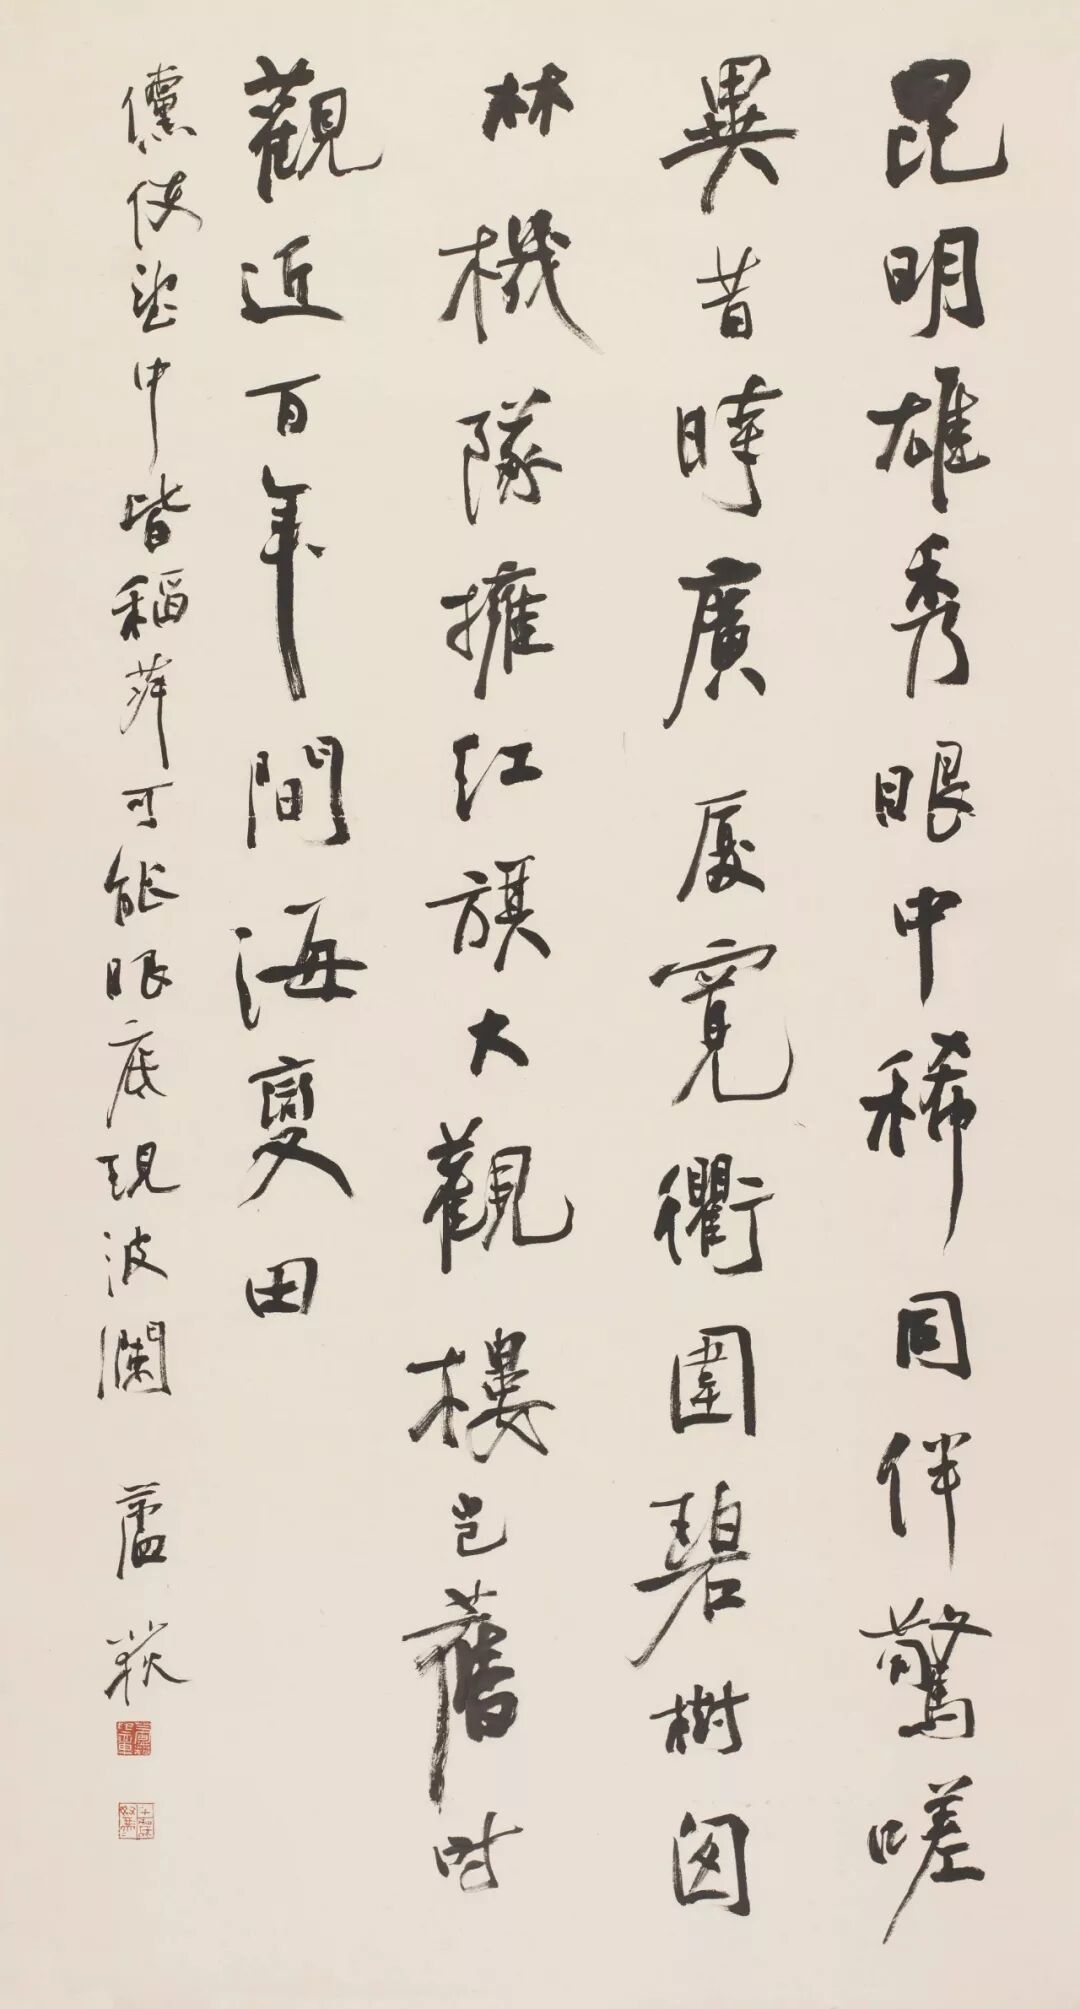 昆明雄秀眼中稀同伴驚嗟
異昔時廣厦寬衢圍碧樹囪
林機隊擁紅旗大觀樓豈舊時
觀近百年間海變田
儻使望中皆稻可能眼底現波瀾 蘆荻